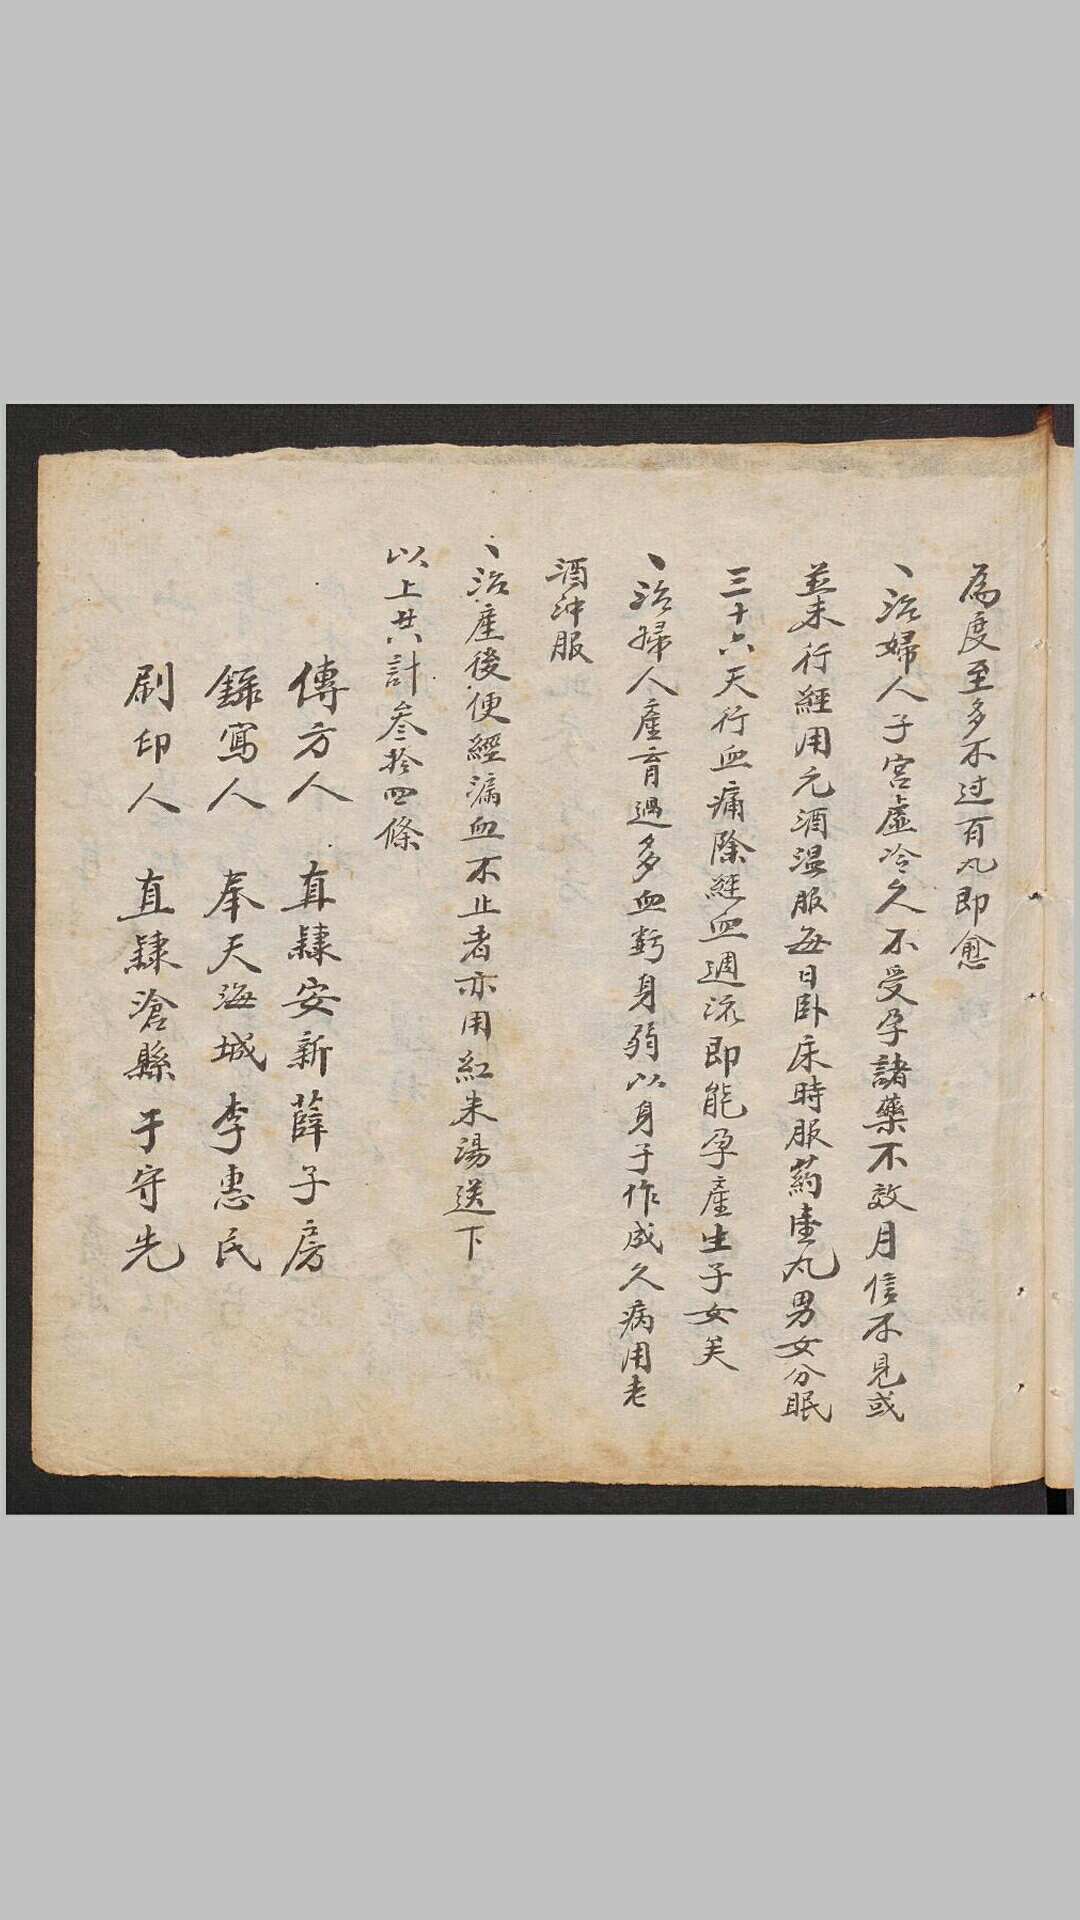 為度至多不过百丸即愈
、治婦人子宮虛冷久不受孕諸藥不效月信不見或
並未行經用元酒溫服每日卧床時服药壹丸男女分眠
三十六天行血痛除經血週流即能孕產生子女矣
、治婦人產育過多血虧身弱以身子作成久病用老
酒沖服
、治產後便經漏血不止者亦用紅朱湯送下
以上共計叁拾四條
傳方人 直隸安新薛子房
錄寫人 奉天海城李惠民
刷印人 直隸滄縣于守先